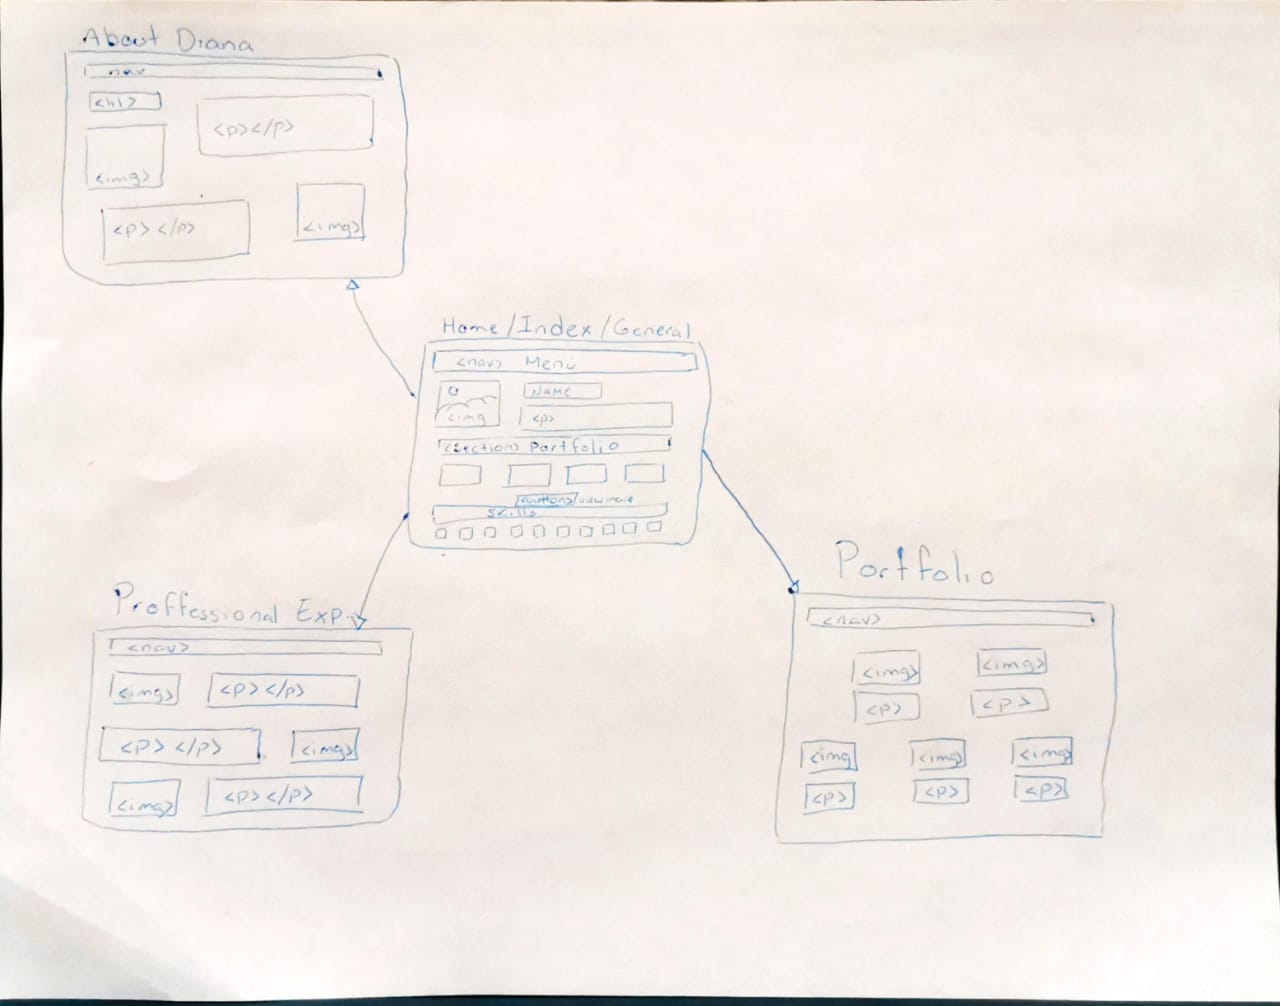 About Diana
nav
<h1>
<p></p>
<img>
<p></p>
<img>
Home/Index/General
<nav> Menú
NAME
<img
<p>
<section> Portfolio
<button>/view more
skills
Proffessional Exp.
<nav>
<img> <p></p>
<p></p> <img>
<img> <p></p>
Portfolio
<nav>
<img> <img>
<p> <p>
<img <img> <img>
<p> <p> <p>